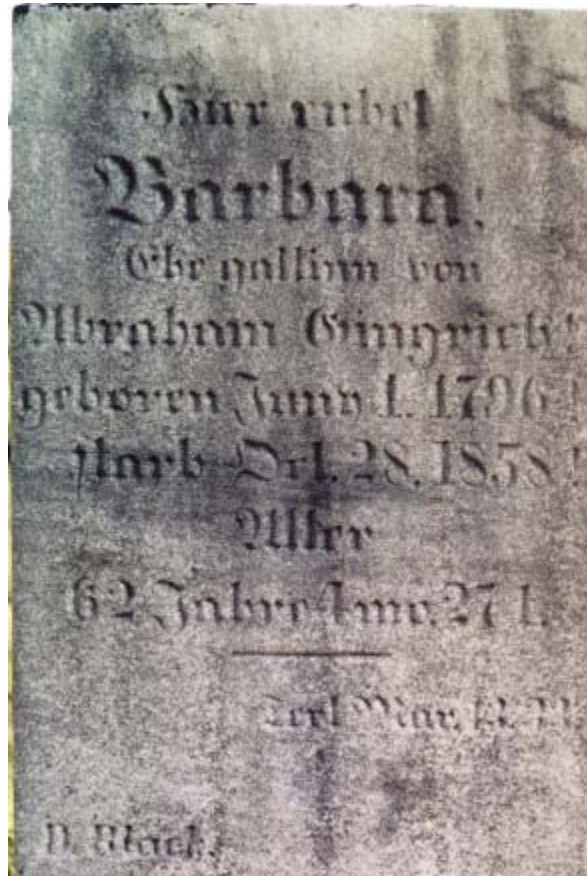 Hier ruhet
Barbara;
Ehegattinn von
Abraham Gingrich;
geboren Juny 1. 1796;
starb Oct. 28. 1858;
Alter
62 Jahre 4mo. 27 t.
Text Mar. 13. 33
D. Black.